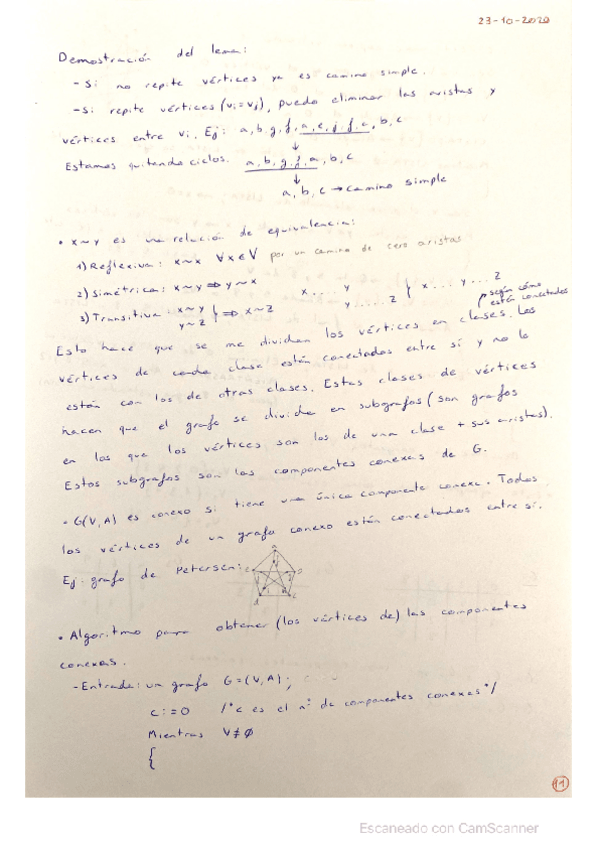 23-10-2020
Demostración del lema:
- Si no repite vértices ya es camino simple.
- Si repite vértices (vi=vj), puedo eliminar las aristas y
vértices entre vi. Ej: a, b, g, f, a, e, j, f, c, b, c
↓
Estamos quitando ciclos. a, b, g, f, a, b, c
↓
a, b, c → camino simple
• x~y es una relación de equivalencia:
1) Reflexiva: x~x ∀x∈V por un camino de cero aristas
2) Simétrica: x~y ⇒ y~x
3) Transitiva: x~y } ⇒ x~z x....y } x...y...z
y~z y....z
según cómo
están conectados
Esto hace que se me dividan los vértices en clases. Los
vértices de cada clase están conectados entre sí y no lo
están con los de otras clases. Estas clases de vértices
hacen que el grafo se divida en subgrafos (son grafos
en los que los vértices son los de una clase + sus aristas).
Estos subgrafos son las componentes conexas de G.
• G(V,A) es conexo si tiene una única componente conexa. Todos
los vértices de un grafo conexo están conectados entre sí.
Ej: grafo de Petersen:
• Algoritmo para obtener (los vértices de) las componentes
conexas.
- Entrada: un grafo G=(V,A);
c:=0 /*c es el nº de componentes conexas*/
Mientras V≠∅
{
11
Escaneado con CamScanner